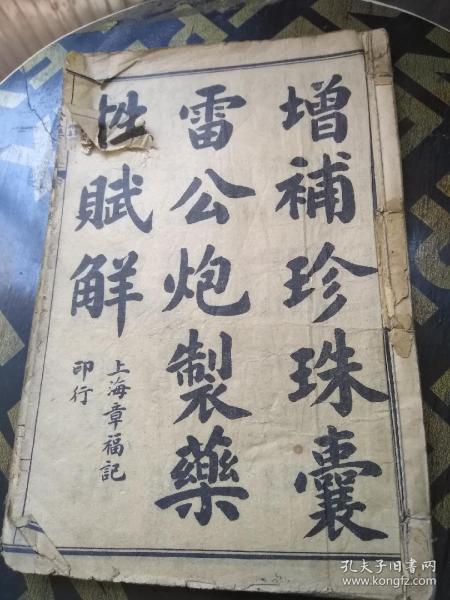 增補珍珠囊
雷公炮製藥
性賦解
上海章福記
印行
孔夫子旧书网
www.kongfz.com